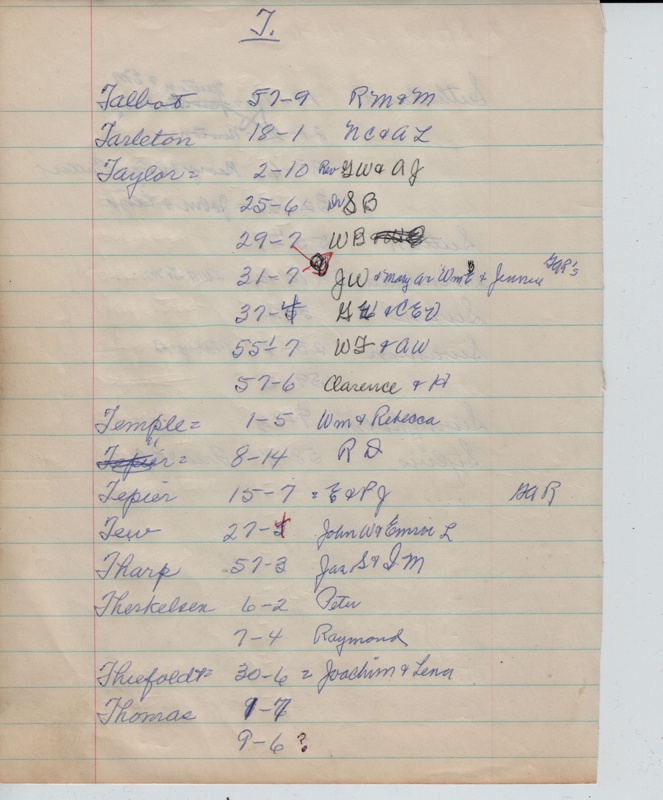 T.
Talbot 57-9 R M & M
Tarleton 18-1 N C & A L
Taylor = 2-10 Rev G W & A J
25-6 Dr S B
29-7 W B
31-7 J W & Mary A & Wm E & Jennie GAR's
37- & C E V
55-7 W F & A W
57-6 Clarence & H
Temple = 1-5 Wm & Rebecca
8-14 R D
Tepier 15-7 = E & P J GAR
Tew 27- John W & L
Tharp 57-3 Jas S & I M
Theskelsen 6-2 Peter
7-4 Raymond
Thiefoldt = 30-6 = Joachim & Lena
Thomas 1-7
9-6 ?